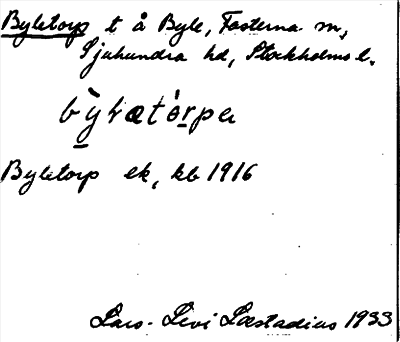 Byletorp t å Byle, Fasterna sn,
Sjuhundra hd, Stockholms l.
bỳ̠ɬætór̠pa
Byletorp ek, kb 1916
Lars-Levi Læstadius 1933